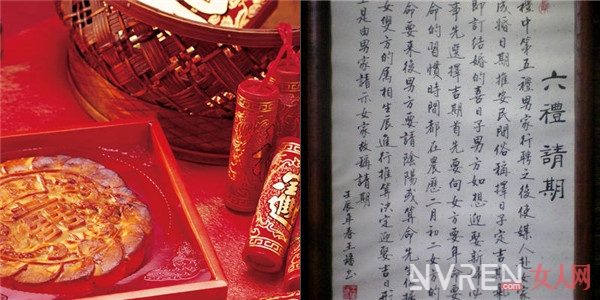 六禮請期
禮中第五禮男家行聘之後使媒人赴
成婚日期推安民間俗稱擇日子定吉
即訂結婚的喜日子男方如想迎娶新
事先選擇吉期首先要向女方要年
命的習慣時間都在農歷二月初二女
命要來後男方要請陰陽或算命先
女雙方的屬相生辰進行推算決定迎娶吉日
是由男家請示女家故稱請期
壬辰年春王
進
NVREN
女人网